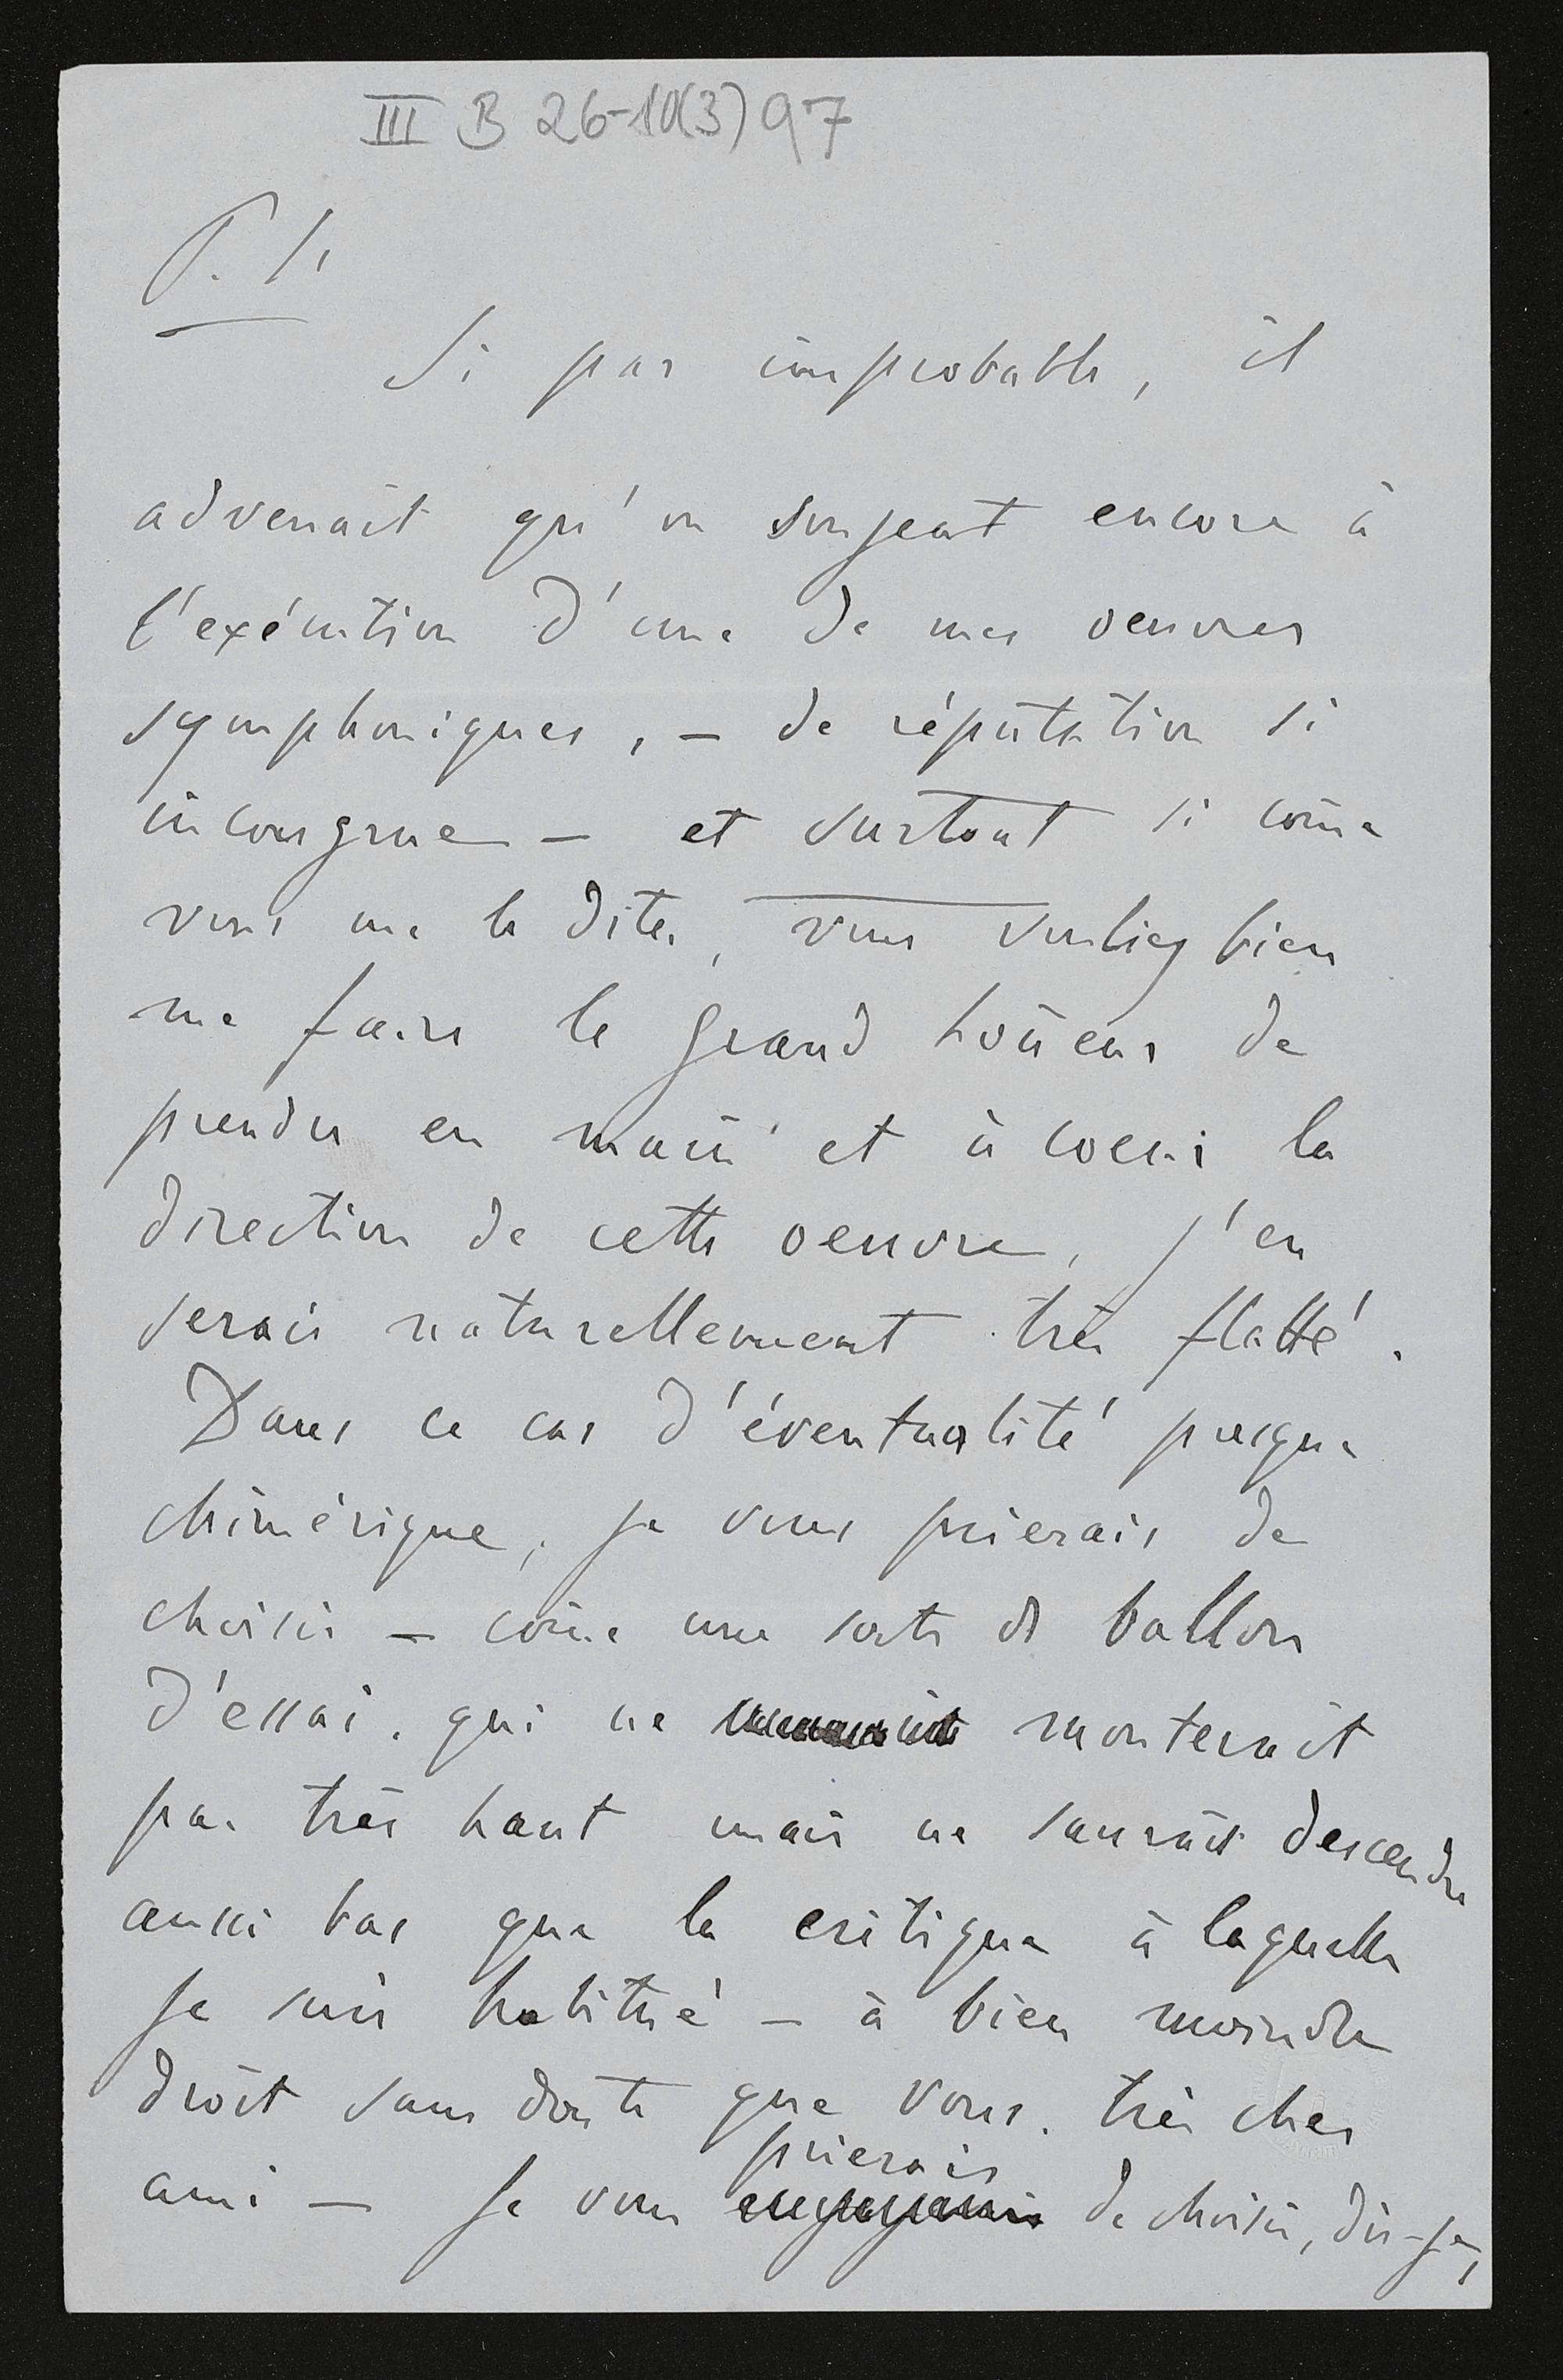 III B 26-10(3) 97
P. S.
Si par improbable, il
advenait qu'on songeat encore à
l'exécution d'une de mes oeuvres
symphoniques, – de réputation si
incongrue – et surtout si com̄e
vous me le dites, vous vouliez bien
me faire le grand hon̄eur de
prendre en main et à coeur la
direction de cette oeuvre, j'en
serais naturellement très flatté.
Dans ce cas d'éventualité presque
chimérique, je vous prierais de
choisir – com̄e une sorte de ballon
d'essai, qui ne monterait
pas très haut mais ne saurait descendre
aussi bas que la critique à laquelle
je suis habitué – à bien moindre
droit sans doute que vous, très cher
ami – je vous prierais de choisir, dis-je,